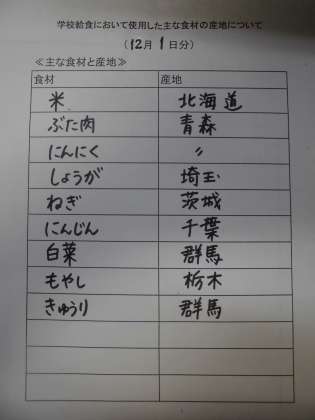 学校給食において使用した主な食材の産地について
(12月 1日分)
≪主な食材と産地≫
食材 産地
米 北海道
ぶた肉 青森
にんにく 〃
しょうが 埼玉
ねぎ 茨城
にんじん 千葉
白菜 群馬
もやし 栃木
きゅうり 群馬